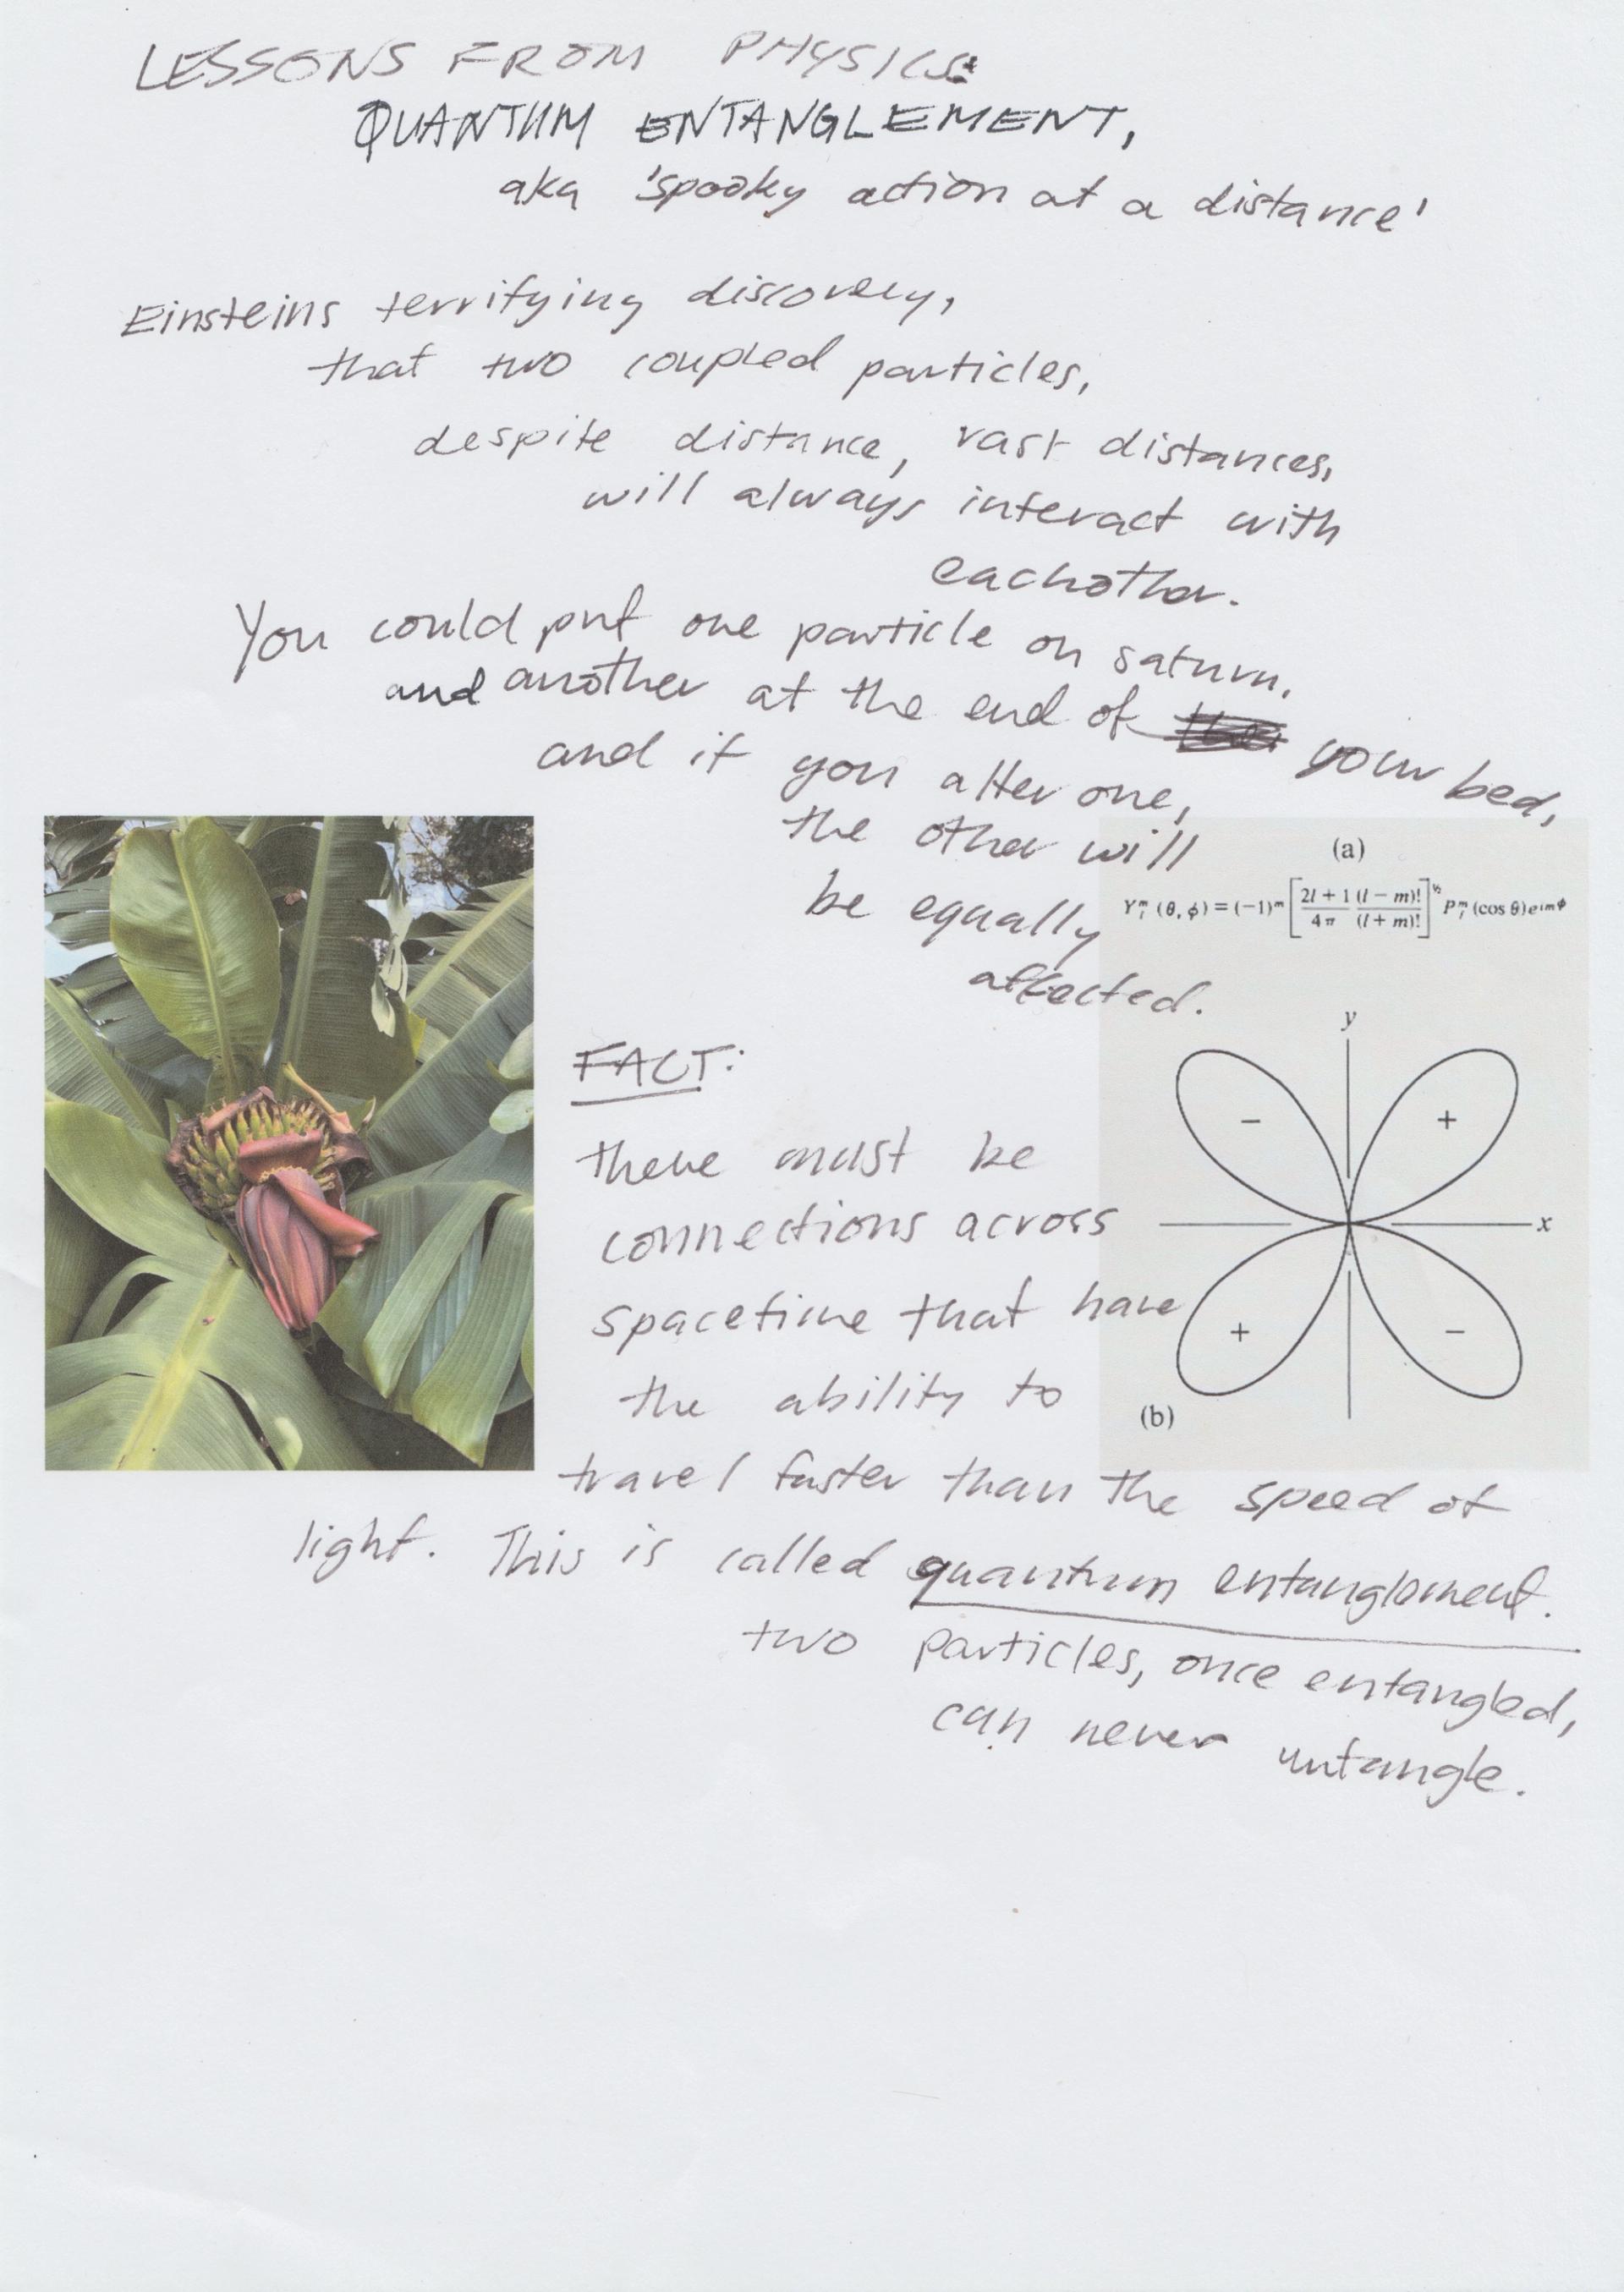 LESSONS FROM PHYSICS:
QUANTUM ENTANGLEMENT,
aka 'spooky action at a distance'
Einsteins terrifying discovery,
that two coupled particles,
despite distance, vast distances,
will always interact with
eachother.
You could put one particle on saturn,
and another at the end of your bed,
and if you alter one,
the other will
be equally
affected.
(a)
Y_l^m (θ, φ) = (−1)^m [ (2l + 1)/(4π) (l − m)!/(l + m)! ]^½ P_l^m (cos θ) e^{imφ}
y
− +
x
+ −
(b)
FACT:
there must be
connections across
spacetime that have
the ability to
travel faster than the speed of
light. This is called quantum entanglement.
two particles, once entangled,
can never untangle.